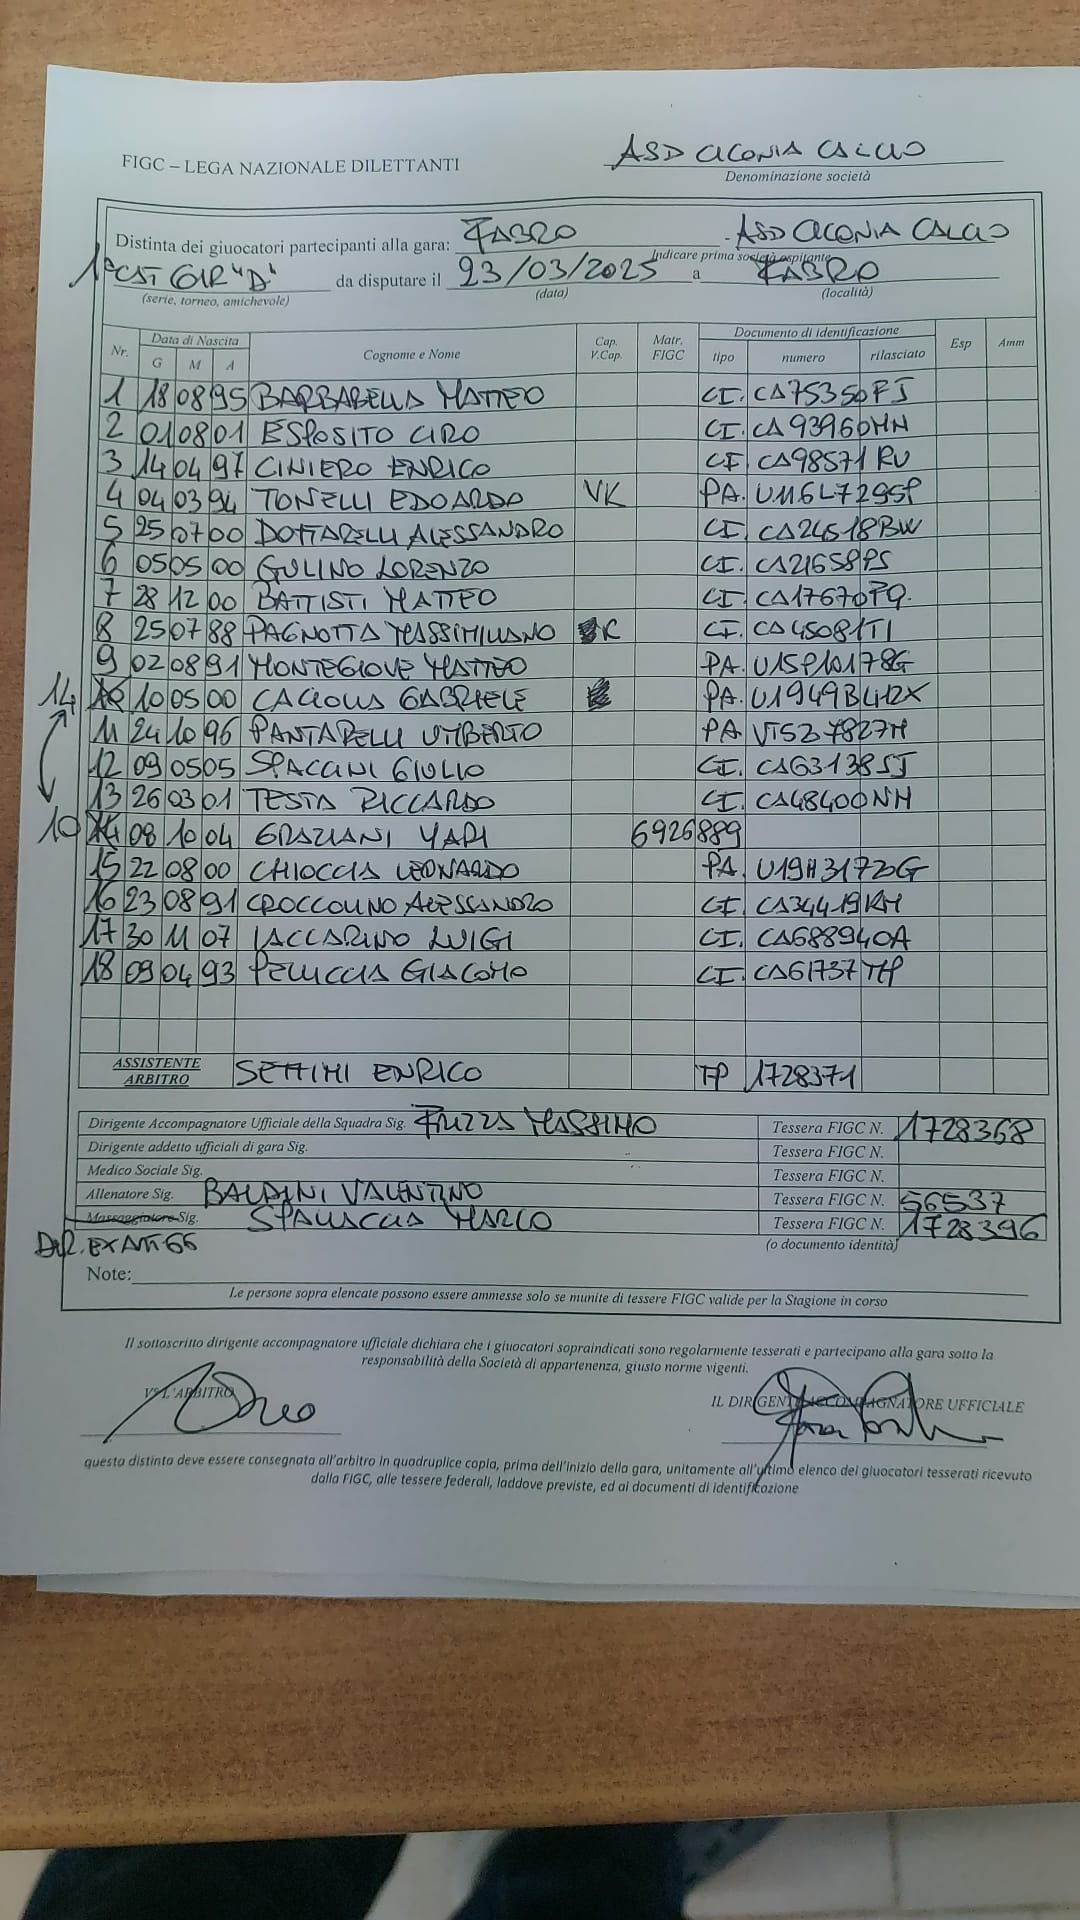 FIGC – LEGA NAZIONALE DILETTANTI
ASD CICONIA CALCIO
Denominazione società
Distinta dei giuocatori partecipanti alla gara: FABRO - ASD CICONIA CALCIO
Indicare prima società ospitante
1ª CAT GIR "D" da disputare il 23/03/2025 a FABRO
(serie, torneo, amichevole) (data) (località)
Nr. Data di Nascita G M A Cognome e Nome Cap. V.Cap. Matr. FIGC Documento di identificazione tipo numero rilasciato Esp Amm
1 18 08 95 BARBABELLA MATTEO CI. CA75350FJ
2 01 08 01 ESPOSITO CIRO CI. CA93960HN
3 14 04 97 CINIERO ENRICO CI CA98571RU
4 04 03 94 TONELLI EDOARDO VK PA. U116L7295P
5 25 07 00 DOTTARELLI ALESSANDRO CI CA24518BW
6 05 05 00 GULINO LORENZO CI. CA21658PS
7 28 12 00 BATTISTI MATTEO CI. CA17670PQ.
8 25 07 88 PAGNOTTA MASSIMILIANO K CI. CA45081TI
9 02 08 91 MONTEGIOVE MATTEO PA. U15P10178G
14 10 05 00 CACIOLLA GABRIELE PA. U1949B412X
11 24 10 96 PANTARELLI UMBERTO PA VT527827M
12 09 05 05 SPACCINI GIULIO CI. CA63138SJ
13 26 03 01 TESTA RICCARDO CI. CA48400NH
10 08 10 04 GRAZIANI YARI 6926889
15 22 08 00 CHIOCCIA LEONARDO PA. U19H3172DG
16 23 08 91 CROCCOLINO ALESSANDRO CI. CA34419KH
17 30 11 07 IACCARINO LUIGI CI. CA68894OA
18 09 04 93 PELUCCIA GIACOMO CI. CA61737MP
ASSISTENTE ARBITRO SETTIMI ENRICO TP 1728371
Dirigente Accompagnatore Ufficiale della Squadra Sig. FRIZZA MASSIMO Tessera FIGC N. 1728368
Dirigente addetto ufficiali di gara Sig. Tessera FIGC N.
Medico Sociale Sig. Tessera FIGC N.
Allenatore Sig. BALDINI VALENTINO Tessera FIGC N. 56537
Massaggiatore Sig. SPALLACCIA MARCO Tessera FIGC N. 1728396
DIR. EX ART 66 (o documento identità)
Note:
Le persone sopra elencate possono essere ammesse solo se munite di tessere FIGC valide per la Stagione in corso
Il sottoscritto dirigente accompagnatore ufficiale dichiara che i giuocatori sopraindicati sono regolarmente tesserati e partecipano alla gara sotto la
responsabilità della Società di appartenenza, giusto norme vigenti.
V° L'ARBITRO IL DIRIGENTE ACCOMPAGNATORE UFFICIALE
questa distinta deve essere consegnata all'arbitro in quadruplice copia, prima dell'inizio della gara, unitamente all'ultimo elenco dei giuocatori tesserati ricevuto
dalla FIGC, alle tessere federali, laddove previste, ed ai documenti di identificazione